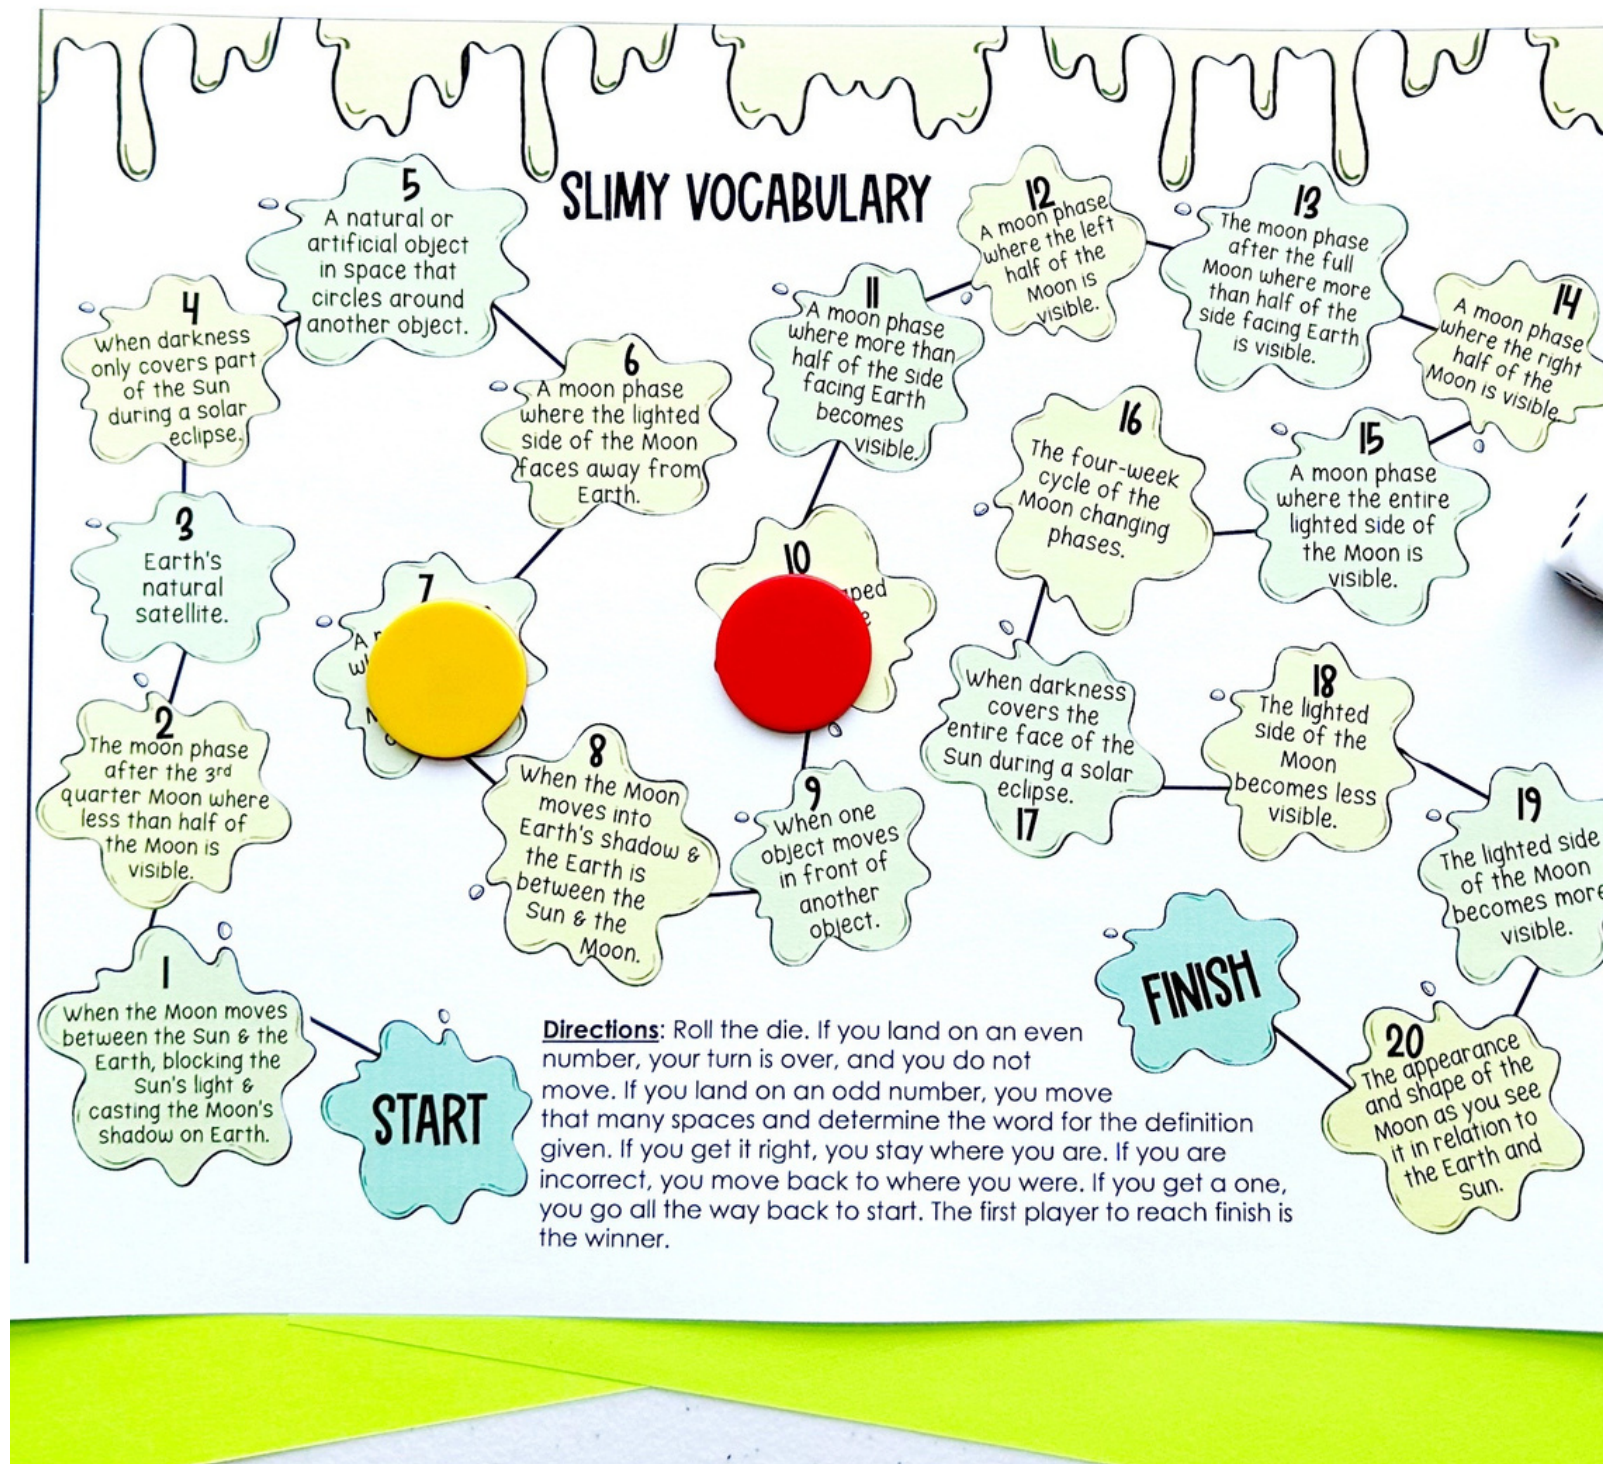 SLIMY VOCABULARY
5
A natural or
artificial object
in space that
circles around
another object.
4
When darkness
only covers part
of the Sun
during a solar
eclipse.
3
Earth's
natural
satellite.
2
The moon phase
after the 3rd
quarter Moon where
less than half of
the Moon is
visible.
1
When the Moon moves
between the Sun & the
Earth, blocking the
Sun's light &
casting the Moon's
shadow on Earth.
START
6
A moon phase
where the lighted
side of the Moon
faces away from
Earth.
7
A
8
When the Moon
moves into
Earth's shadow &
the Earth is
between the
Sun & the
Moon.
9
When one
object moves
in front of
another
object.
10
11
A moon phase
where more than
half of the side
facing Earth
becomes
visible.
12
A moon phase
where the left
half of the
Moon is
visible.
13
The moon phase
after the full
Moon where more
than half of the
side facing Earth
is visible.
14
A moon phase
where the right
half of the
Moon is visible.
15
A moon phase
where the entire
lighted side of
the Moon is
visible.
16
The four-week
cycle of the
Moon changing
phases.
When darkness
covers the
entire face of the
Sun during a solar
eclipse.
17
18
The lighted
side of the
Moon
becomes less
visible.
19
The lighted side
of the Moon
becomes more
visible.
20
The appearance
and shape of the
Moon as you see
it in relation to
the Earth and
Sun.
FINISH
Directions: Roll the die. If you land on an even
number, your turn is over, and you do not
move. If you land on an odd number, you move
that many spaces and determine the word for the definition
given. If you get it right, you stay where you are. If you are
incorrect, you move back to where you were. If you get a one,
you go all the way back to start. The first player to reach finish is
the winner.